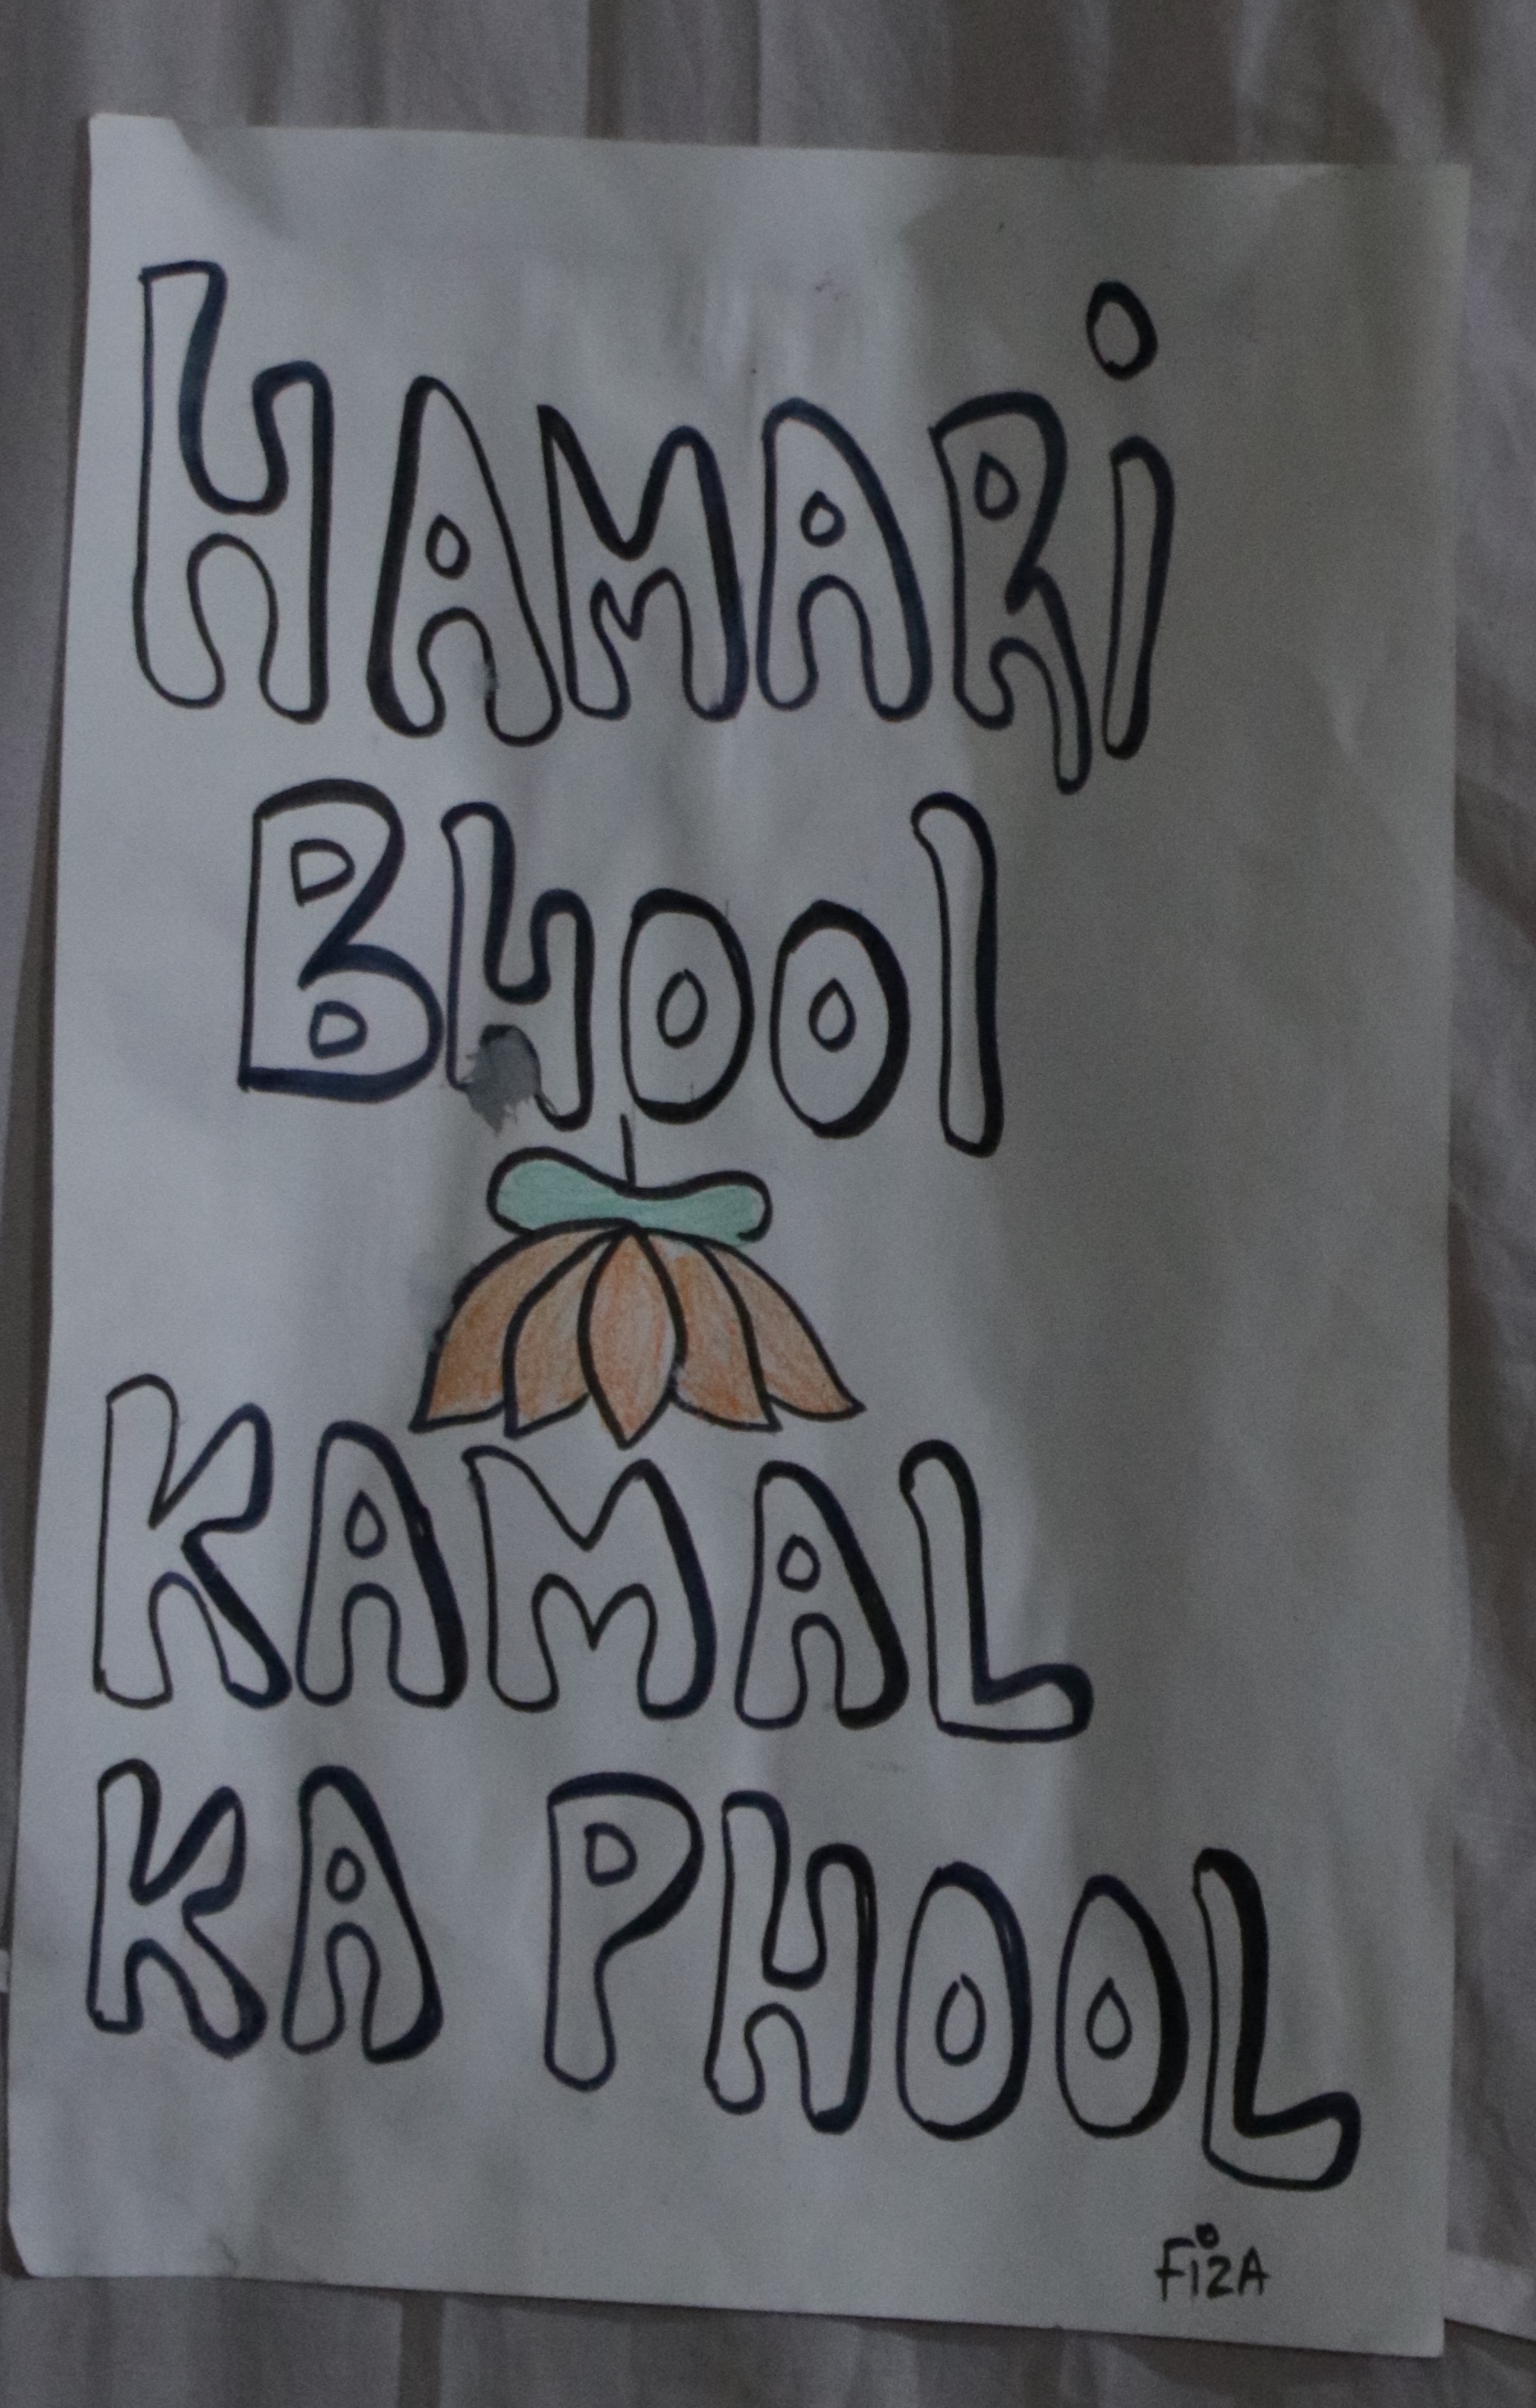 HAMARi
BHOOl
KAMAL
KA PHOOL
FiZA